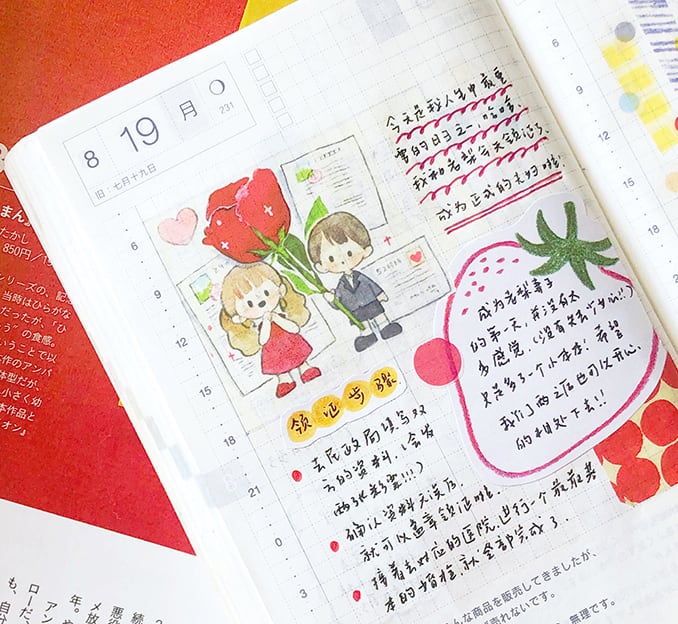 8
19
月
231
旧 七月十九日
6
9
12
15
18
21
0
3
今天是我人生中最重
要的日子之一,哈哈哈
我和老梨今天领证了,
成为正式的夫妇啦!
成为老梨妻子
的第一天,并没有太
多感觉,
只是多了一个小本本!希望
我们两之后也可以开心
的相处下去!!
领证步骤
去民政局填写双
方的资料
确认资料无误后,
就可以盖章领证啦。
接着去对应的医院,进行一个最最基
本的婚检,就全部完成了。
6
9
12
15
まん。
たかし
850円/15
シリーズの、記
当時はひらがな
だったが、「ひ
う」の食感。
いうことで以
作のアンパ
体型だが、
小さく幼
本作品と
オン』
んな商品を販売してきましたが、
売れないです。
無理です。